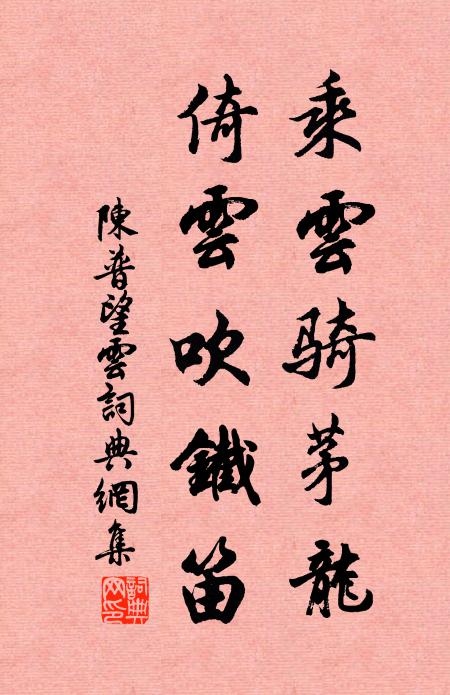 乘雲騎茅龍
倚雲吹鐵笛
陳普望雲詞典網集
詞典網印